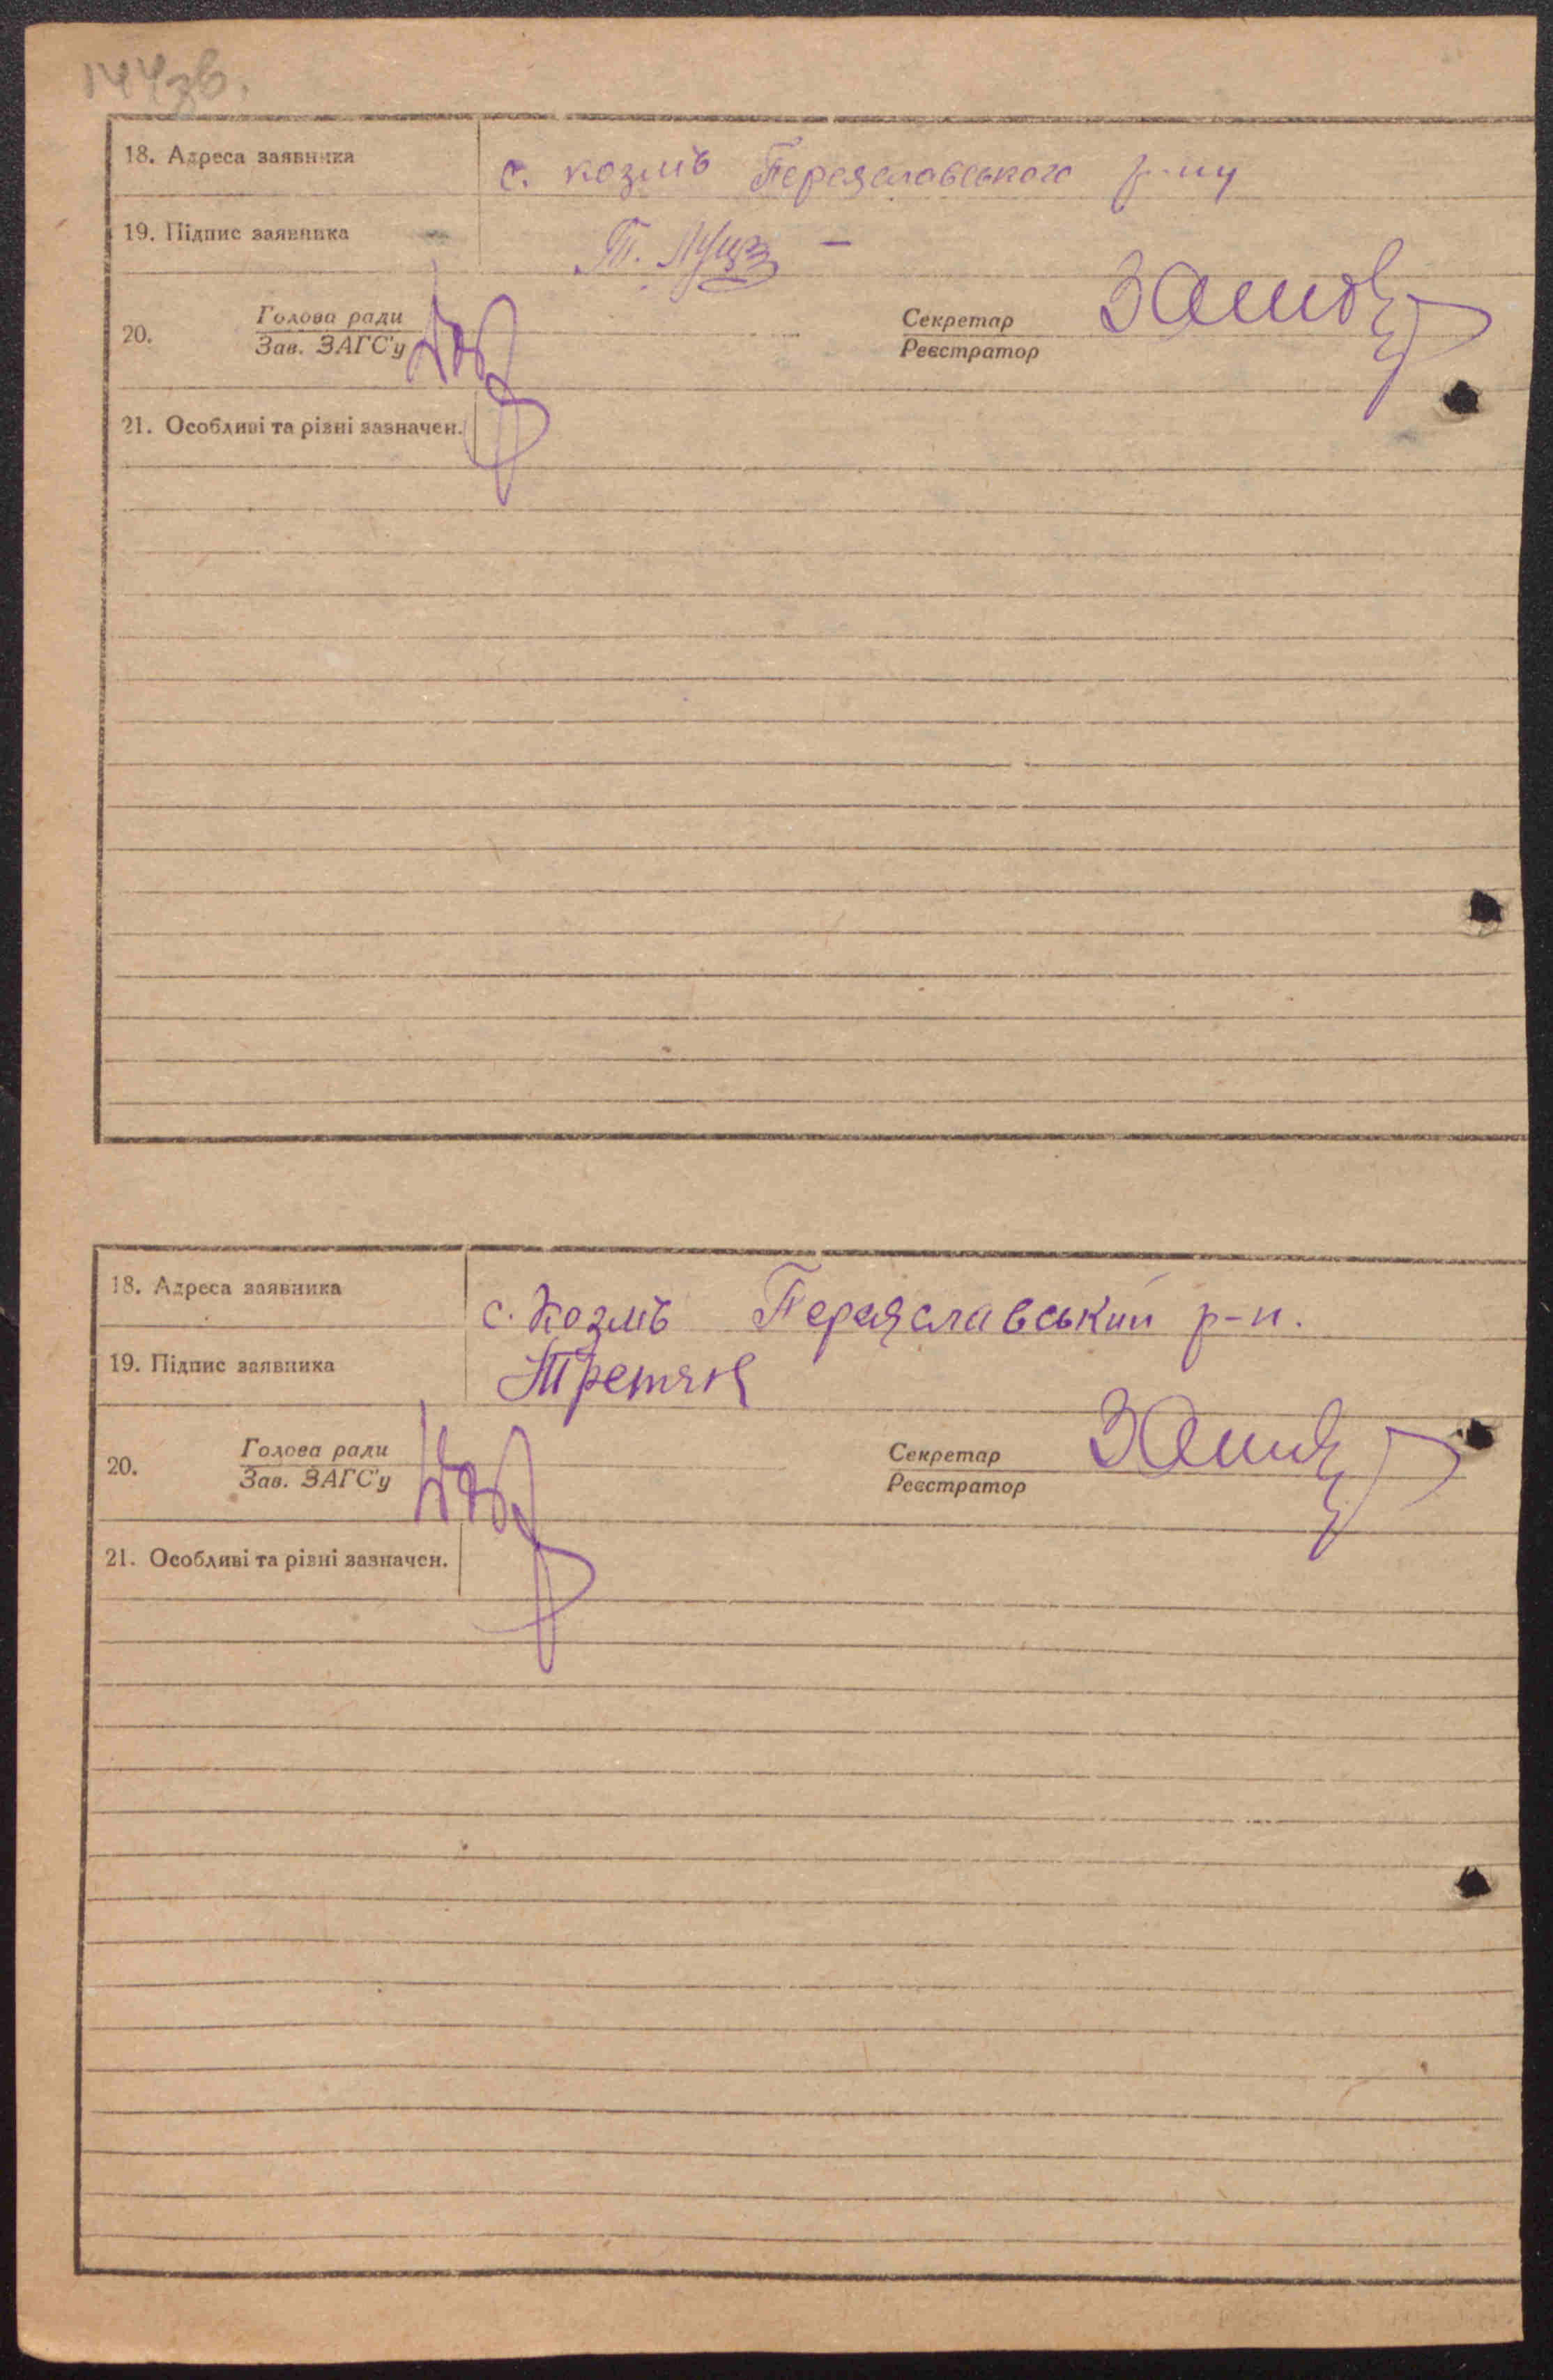 144зв.
18. Адреса заявника с. козлів Переяславського р-ну
19. Підпис заявника Т. Луц
20. Голова ради
Зав. ЗАГС'у
Секретар
Реєстратор
21. Особливі та різні зазначен.
18. Адреса заявника с. Козлів Переяславський р-н.
19. Підпис заявника Третяк
20. Голова ради
Зав. ЗАГС'у
Секретар
Реєстратор
21. Особливі та різні зазначен.